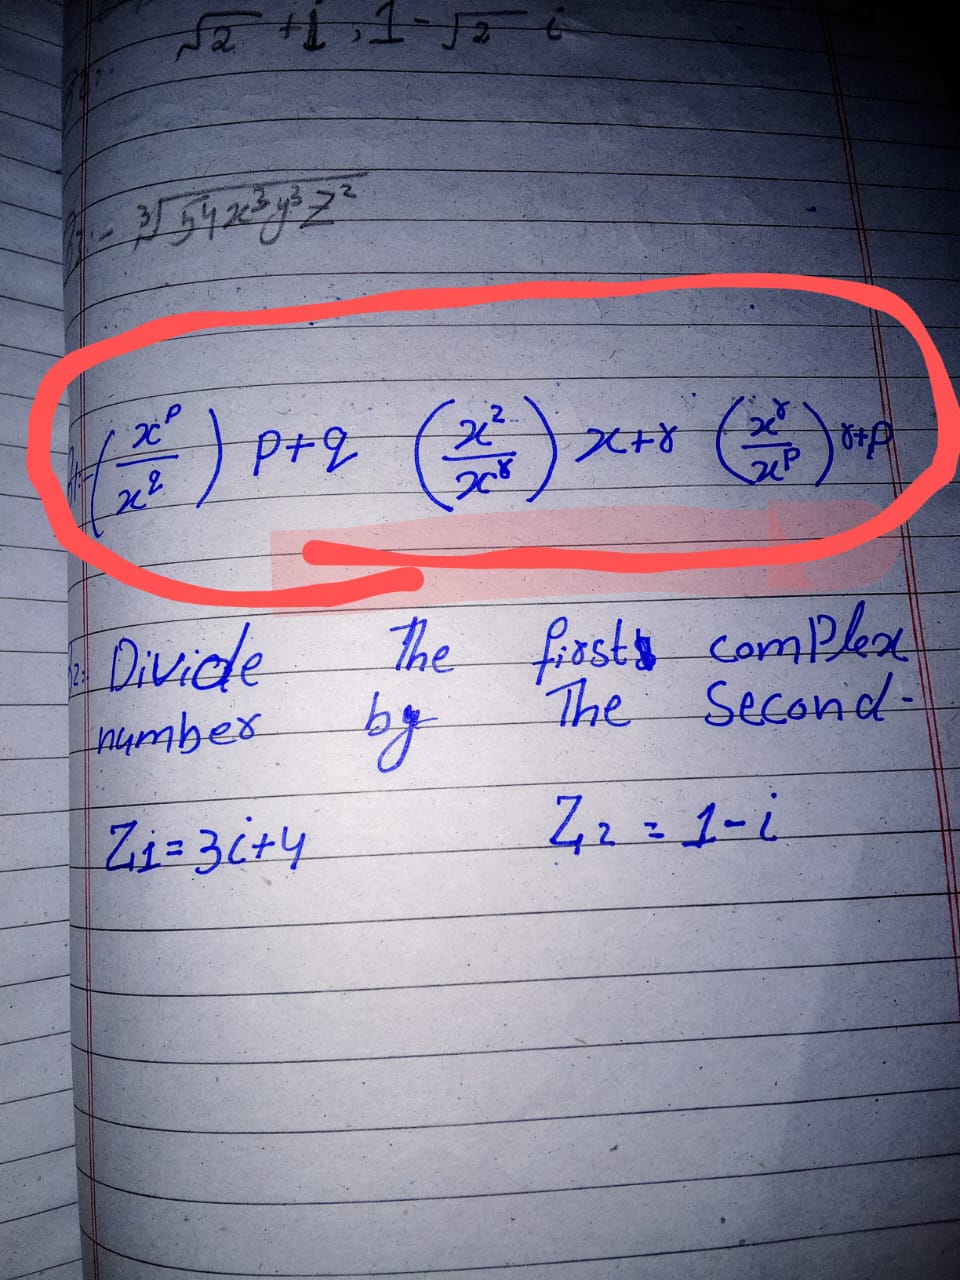 √2 + i , 1 - √2 i
∛54x³y³z²
(x^p/x^q) p+q (x²/x^r) x+r (x^r/x^p) r+p
2: Divide The first complex
number by The Second -
Z1 = 3i+4 Z2 = 1-i